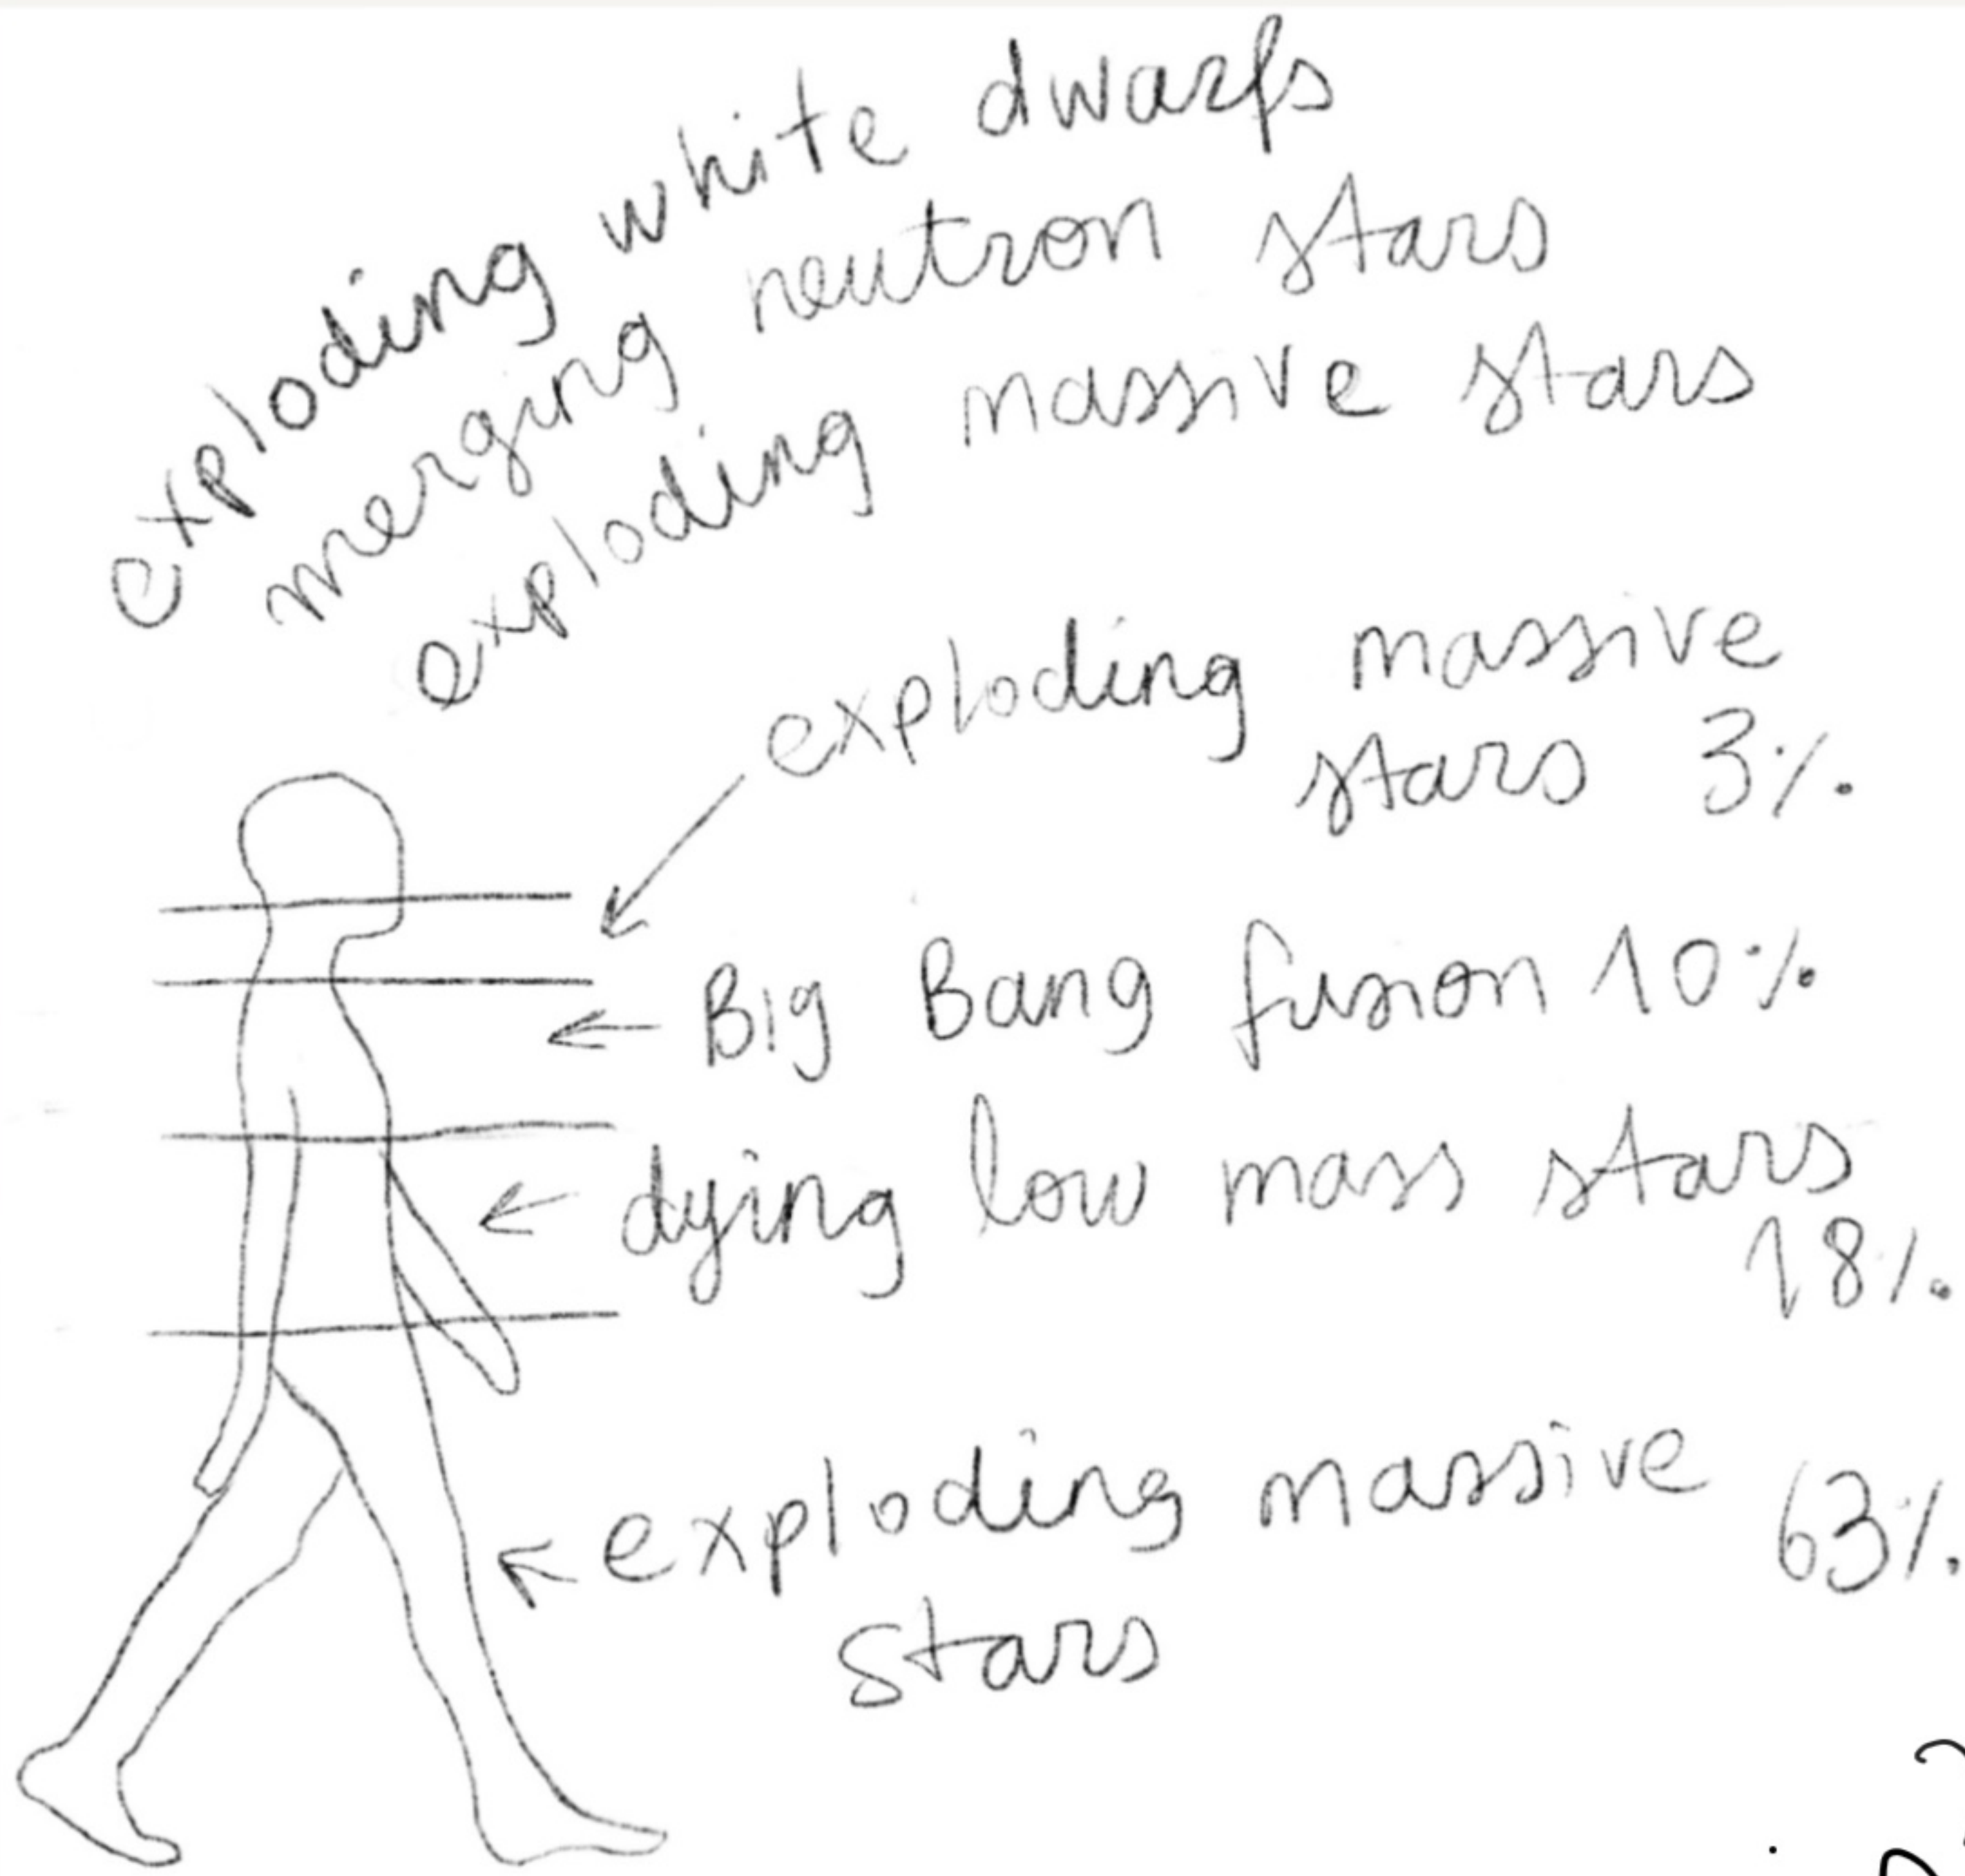 exploding white dwarfs
merging neutron stars
exploding massive stars
exploding massive
stars 3%
Big Bang fusion 10%
dying low mass stars
18%
exploding massive 63%
stars